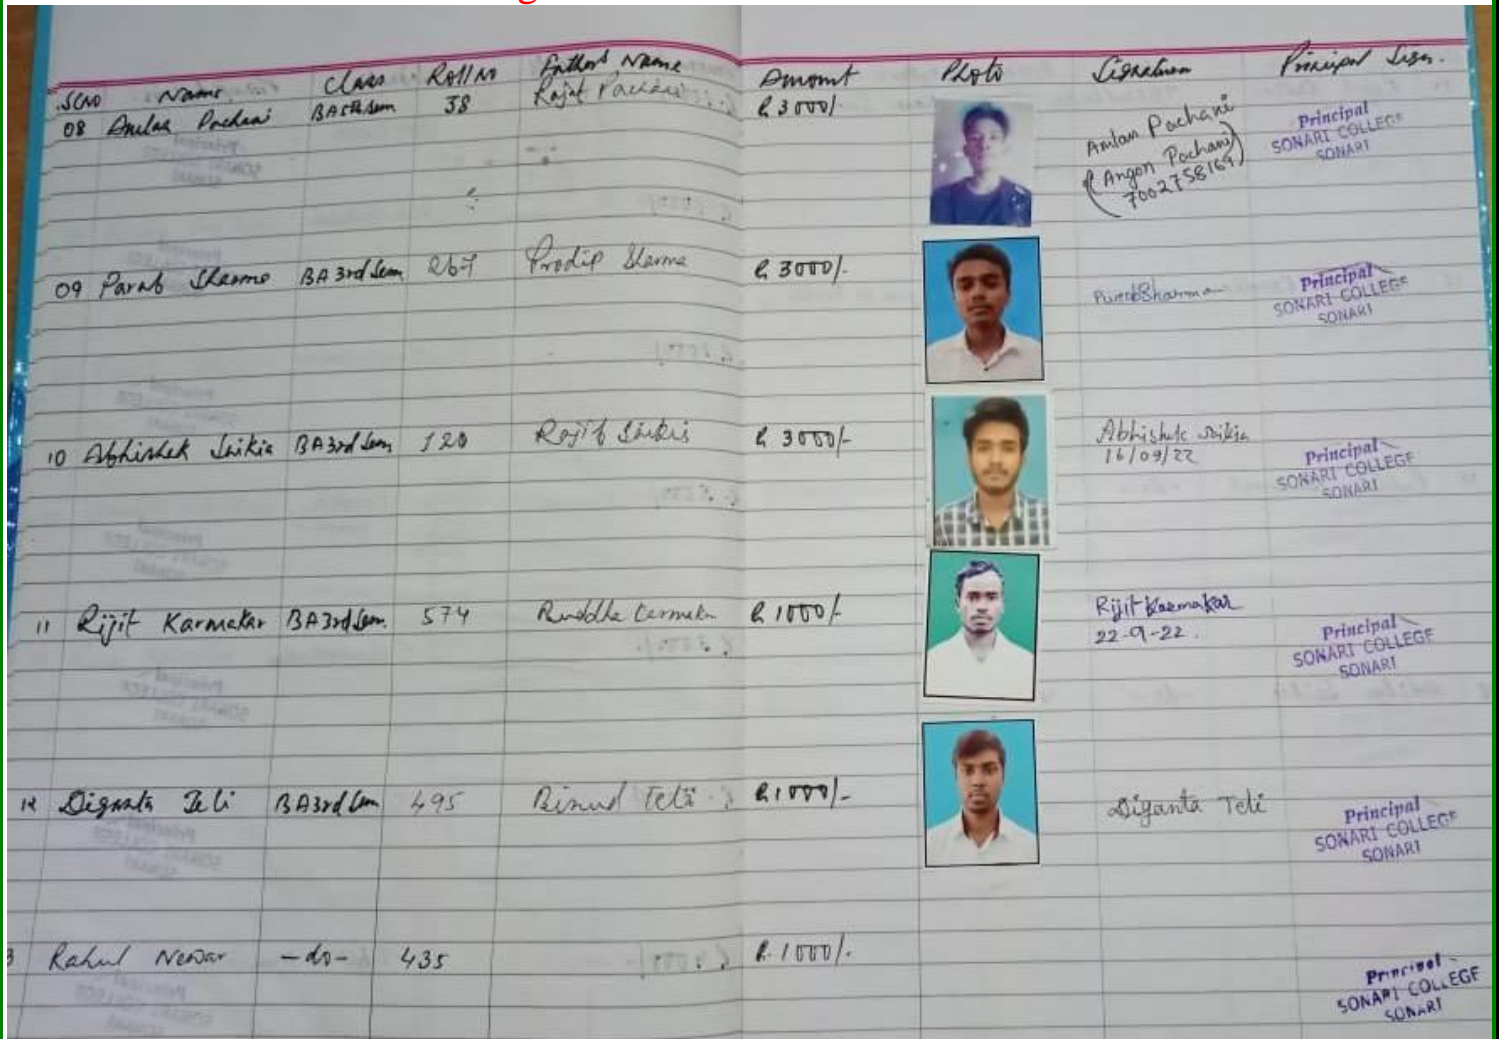 Sl No Name Class Roll No Father Name Amount Photo Signature Principal Sign.
08 Amlan Pachani BA5th Sem 38 Rajat Pachani R 3000/-
Amlan Pachani
(Angon Pachani)
7002758169
Principal
SONARI COLLEGE
SONARI
09 Parab Sharma BA 3rd Sem 267 Prodip Sharma R 3000/-
Principal
SONARI COLLEGE
SONARI
10 Abhishek Saikia BA3rd Sem 120 Rajib Saikia R 3000/-
Abhishek Saikia
16/09/22
Principal
SONARI COLLEGE
SONARI
11 Rijit Karmakar BA3rd Sem. 574 Karmakar R 1000/-
Rijit Karmakar
22-9-22.
Principal
SONARI COLLEGE
SONARI
12 Diganta Teli BA3rd Sem 495 Binud Teli R 1000/-
Diganta Teli
Principal
SONARI COLLEGE
SONARI
3 Rahul Newar -do- 435 R. 1000/-
Principal
SONARI COLLEGE
SONARI